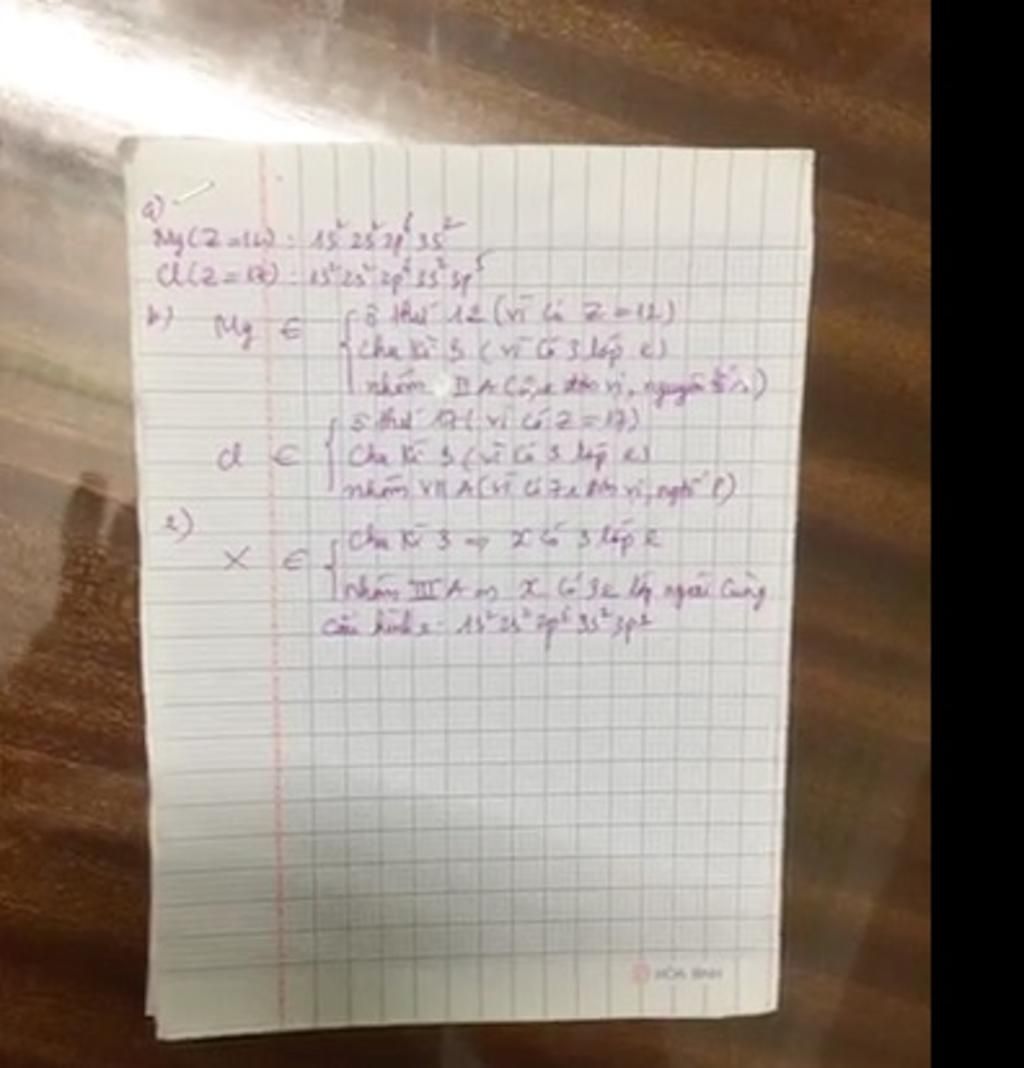 a)
Mg (Z=12) : 1s² 2s² 2p⁶ 3s²
Cl (Z=17) : 1s² 2s² 2p⁶ 3s² 3p⁵
b) Mg ∈ { ô thứ 12 (vì có Z=12)
chu kì 3 (vì có 3 lớp e)
nhóm IIA (2e hóa trị, nguyên tố s)
Cl ∈ { ô thứ 17 (vì có Z=17)
chu kì 3 (vì có 3 lớp e)
nhóm VIIA (vì có 7e hóa trị, ngtố p)
2)
X ∈ { chu kì 3 => X có 3 lớp e
nhóm IIIA => X có 3e lớp ngoài cùng
cấu hình e: 1s² 2s² 2p⁶ 3s² 3p¹
HÒA BÌNH